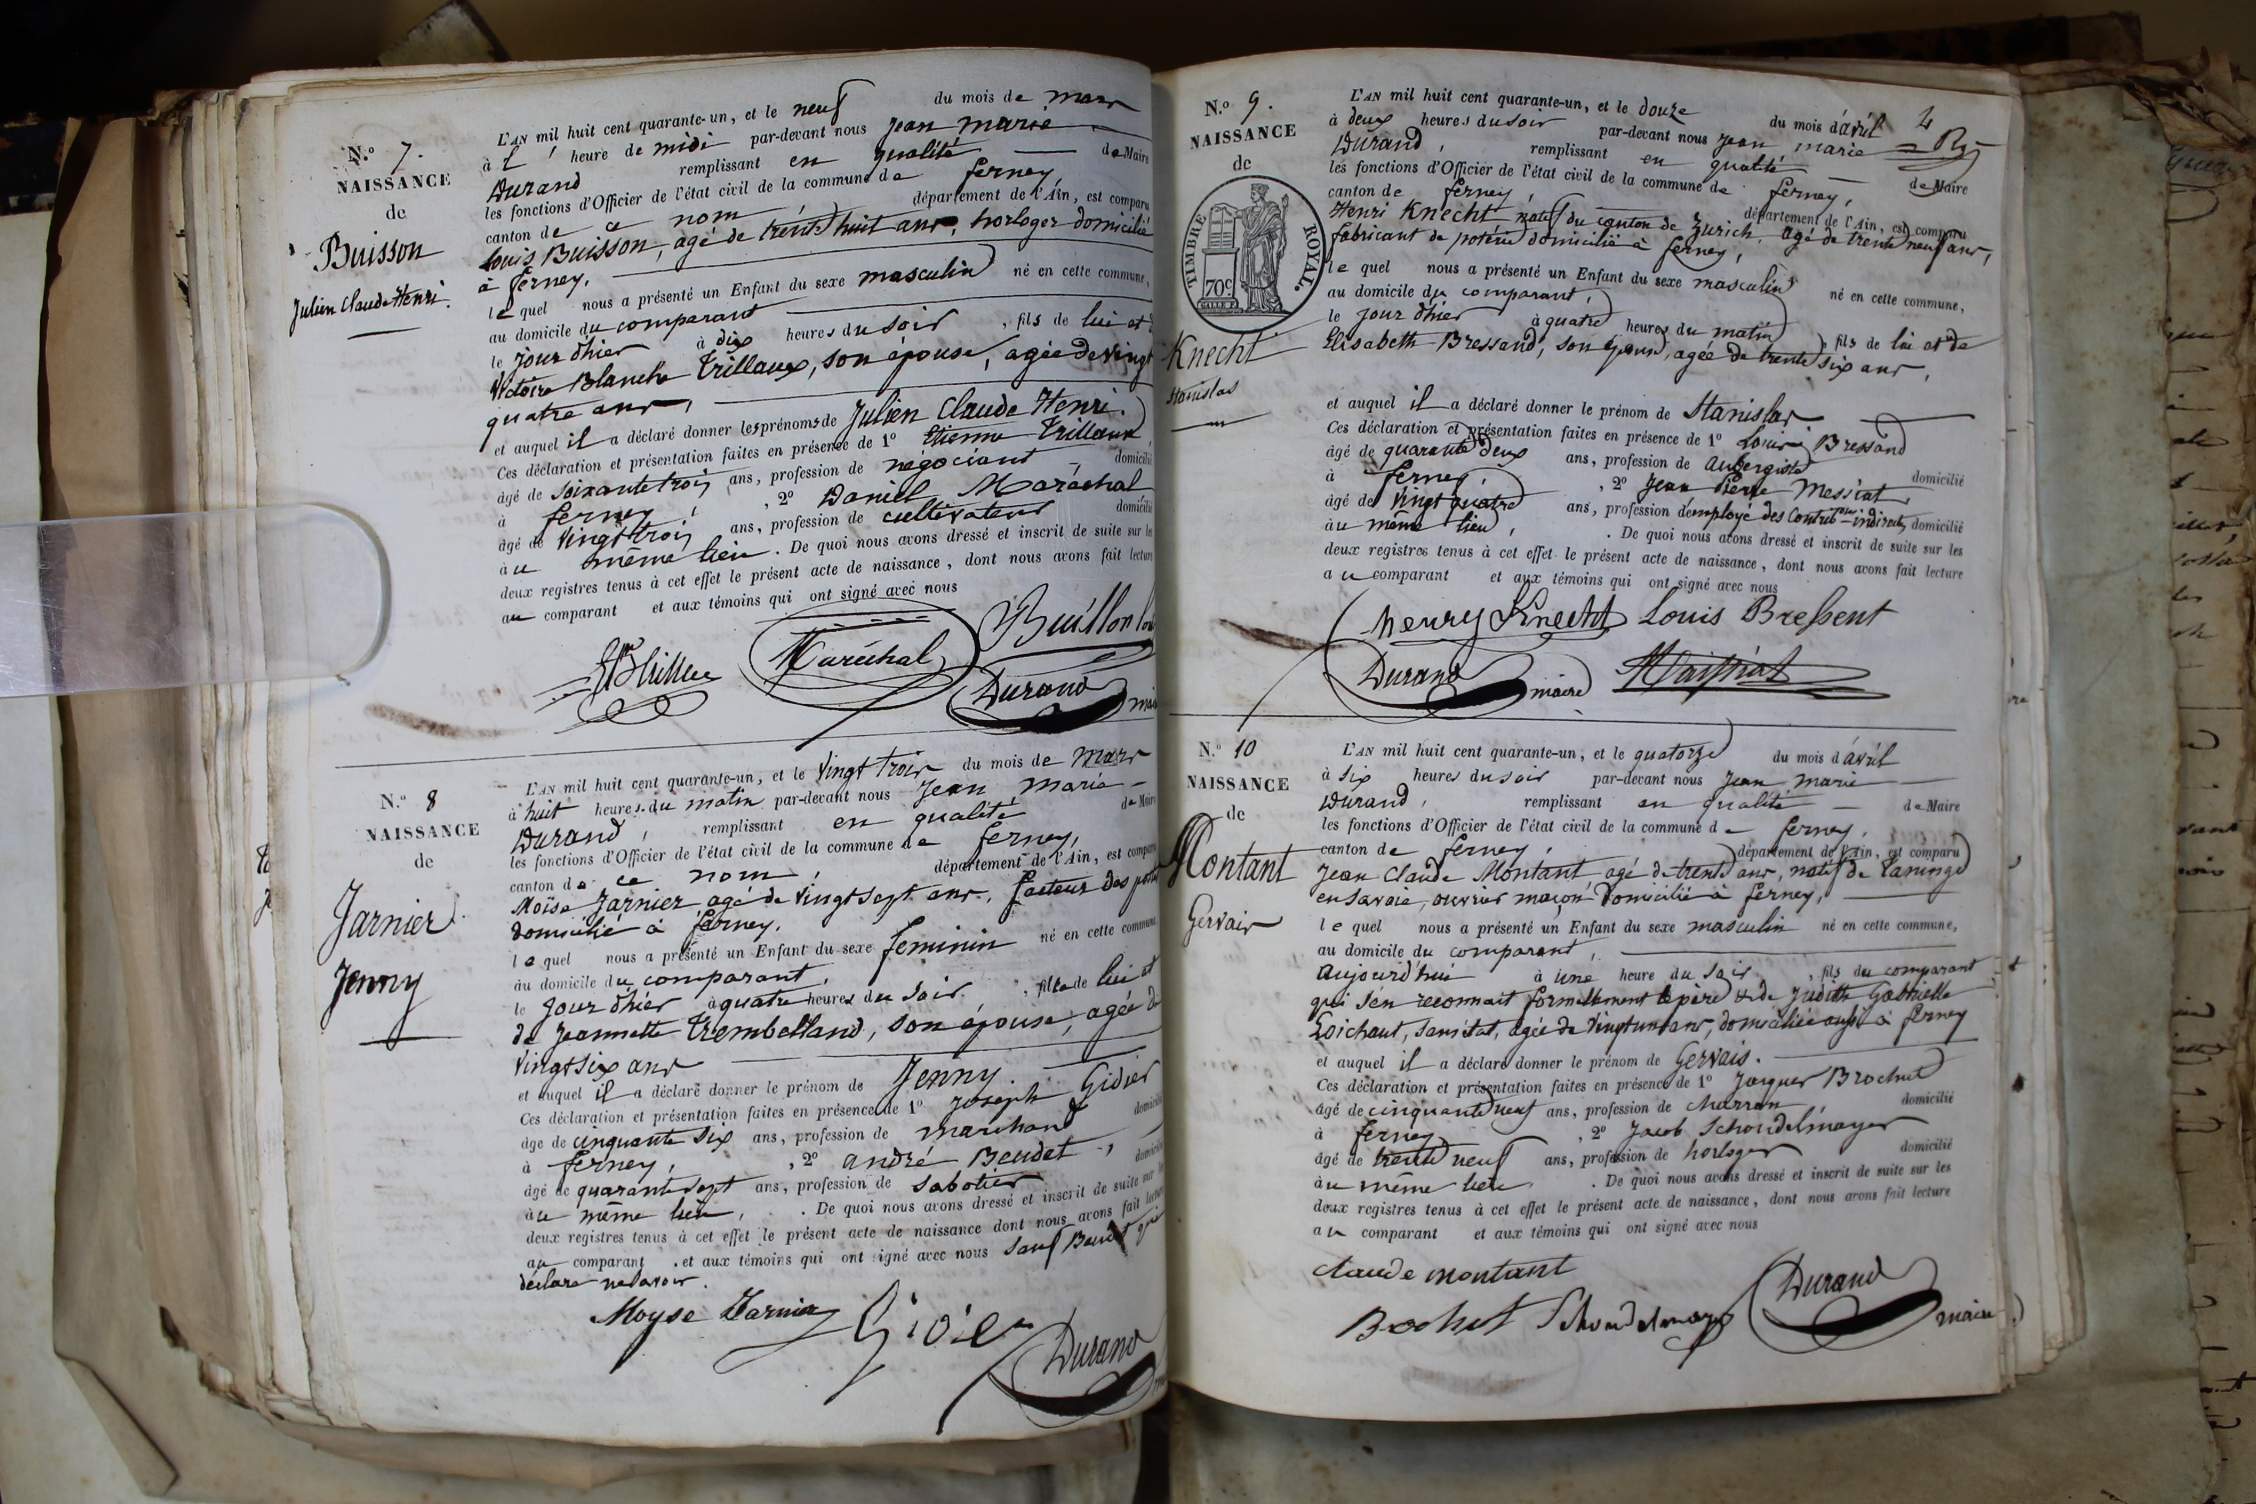 N.º 7.
NAISSANCE
de
Buisson
Julien Claude Henri.
L'AN mil huit cent quarante-un, et le neuf du mois de mars
à l' heure de midi par-devant nous Jean Marie
Durand remplissant en qualité de Maire
les fonctions d'Officier de l'état civil de la commune de ferney,
canton de ce nom, département de l'Ain, est comparu
Louis Buisson, agé de trente huit ans, horloger domicilié
à ferney.
lequel nous a présenté un Enfant du sexe masculin né en cette commune,
au domicile du comparant
le jour d'hier à dix heures du soir, fils de lui et d
Victoire Blanche Trillaux, son épouse, agée de vingt
quatre ans,
et auquel il a déclaré donner les prénoms de Julien Claude Henri.
Ces déclaration et présentation faites en présence de 1º Etienne Trillaux
âgé de soixante trois ans, profession de négociant domicilié
à ferney, 2º Daniel Maréchal
âgé de vingt trois ans, profession de cultivateur domicilié
au même lieu. De quoi nous avons dressé et inscrit de suite sur les
deux registres tenus à cet effet le présent acte de naissance, dont nous avons fait lecture
au comparant et aux témoins qui ont signé avec nous
Maréchal
Durand
N.º 8
NAISSANCE
de
Jarnier
Jenny
L'AN mil huit cent quarante-un, et le vingt trois du mois de mars
à huit heures du matin par-devant nous Jean Marie
Durand, remplissant en qualité de Maire
les fonctions d'Officier de l'état civil de la commune de ferney,
canton de ce nom, département de l'Ain, est comparu
Moïse Jarnier agé de vingt sept ans, facteur des postes
domicilié à ferney.
lequel nous a présenté un Enfant du sexe feminin né en cette commune
au domicile du comparant,
le jour d'hier à quatre heures du soir, fille de lui et
de Jeannette Trembelland, son épouse, agée de
vingt six ans
et auquel il a déclaré donner le prénom de Jenny.
Ces déclaration et présentation faites en présence de 1º Joseph Gidier
âgé de cinquante six ans, profession de marchand domicilié
à ferney, 2º andré Beudet, domicilié
âgé de quarante sept ans, profession de sabotier
au même lieu, De quoi nous avons dressé et inscrit de suite sur les
deux registres tenus à cet effet le présent acte de naissance dont nous avons fait lecture
au comparant et aux témoins qui ont signé avec nous sauf Beudet qui
déclare ne savoir.
Moyse Jarnier
Durand
4
N.º 9.
NAISSANCE
de
TIMBRE ROYAL.
70 c.
Knecht
Stanislas
L'AN mil huit cent quarante-un, et le douze du mois d'avril
à deux heures du soir par-devant nous Jean Marie
Durand, remplissant en qualité de Maire
les fonctions d'Officier de l'état civil de la commune de ferney,
canton de ferney, département de l'Ain, est comparu
Henri Knecht natif du canton de Zurich, agé de trente neuf ans,
fabricant de poterie domicilié à ferney,
lequel nous a présenté un Enfant du sexe masculin né en cette commune,
au domicile du comparant,
le jour d'hier à quatre heures du matin, fils de lui et de
Elisabeth Bressand, son épouse, agée de trente six ans,
et auquel il a déclaré donner le prénom de Stanislas
Ces déclaration et présentation faites en présence de 1º Louis Bressand
âgé de quarante deux ans, profession de aubergiste domicilié
à ferney, 2º Jean Pierre Messiat
âgé de vingt quatre ans, profession d'employé des Contrib.ons indirectes domicilié
au même lieu, De quoi nous avons dressé et inscrit de suite sur les
deux registres tenus à cet effet le présent acte de naissance, dont nous avons fait lecture
au comparant et aux témoins qui ont signé avec nous
henry Knecht Louis Bressent
Durand maire
N.º 10
NAISSANCE
de
Montant
Gervais
L'AN mil huit cent quarante-un, et le quatorze du mois d'avril
à six heures du soir par-devant nous Jean Marie
Durand, remplissant en qualité de Maire
les fonctions d'Officier de l'état civil de la commune de ferney,
canton de ferney, département de l'Ain, est comparu
Jean Claude Montant agé de trente ans, natif de Taninge
en Savoie, ouvrier maçon domicilié à ferney,
lequel nous a présenté un Enfant du sexe masculin né en cette commune,
au domicile du comparant,
aujourd'hui à une heure du soir, fils du comparant
qui s'en reconnait formellement le père et de Judith Gabrielle
Loichaut, sans état, agée de vingt un ans, domiciliée aussi à ferney
et auquel il a déclaré donner le prénom de Gervais.
Ces déclaration et présentation faites en présence de 1º Jacques Brochet
âgé de cinquante neuf ans, profession de charron domicilié
à ferney, 2º Jacob Schoudelmayer
âgé de trente neuf ans, profession de horloger domicilié
au même lieu. De quoi nous avons dressé et inscrit de suite sur les
deux registres tenus à cet effet le présent acte de naissance, dont nous avons fait lecture
au comparant et aux témoins qui ont signé avec nous
Claude montant
Bochet Schoudelmayer Durand maire